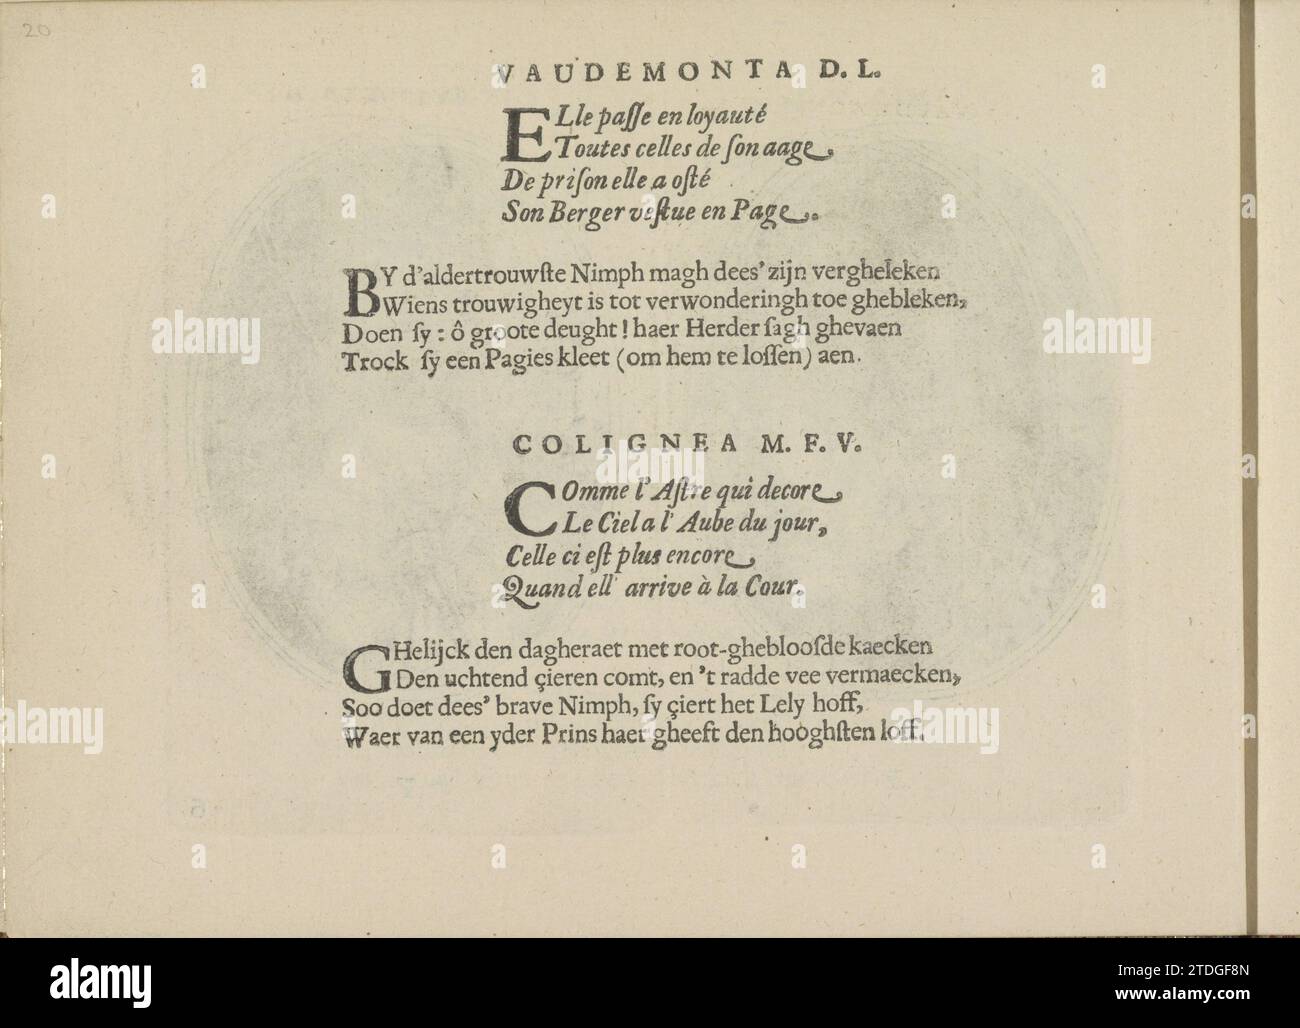 20
VAUDEMONTA D. L.
ELle paſſe en loyauté
Toutes celles de ſon aage.
De priſon elle a oſté
Son Berger veſtue en Page.
BY d'aldertrouwſte Nimph magh dees' zijn vergheleken
Wiens trouwigheyt is tot verwonderingh toe ghebleken,
Doen ſy: ô groote deught! haer Herder ſagh ghevaen
Trock ſy een Pagies kleet (om hem te loſſen) aen.
COLIGNEA M. F. V.
COmme l'Aſtre qui decore,
Le Ciel a l'Aube du jour,
Celle ci eſt plus encore,
Quand ell' arrive à la Cour.
GHelijck den dagheraet met root-gheblooſde kaecken
Den uchtend çieren comt, en 't radde vee vermaecken,
Soo doet dees' brave Nimph, ſy çiert het Lely hoff,
Waer van een yder Prins haer gheeft den hooghſten loff.
alamy
Image ID: 2TDGF8N
www.alamy.com